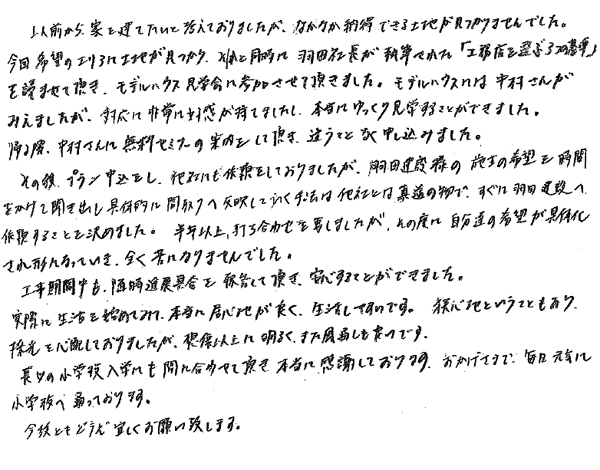 以前から、家を建てたいと考えておりましたが、なかなか納得できる土地が見つかりませんでした。
今回希望のエリアに土地が見つかり、それと同時に羽田社長が執筆された「工務店を選ぶ37の基準」
を読ませて頂き、モデルハウス見学会に参加させて頂きました。モデルハウスには中村さんが
みえましたが、対応に非常に好感が持てましたし、本当にゆっくり見学することができました。
帰る際、中村さんに無料セミナーの案内をして頂き、迷うことなく申し込みました。
その後、プラン申込をし、他社にも依頼をしておりましたが、羽田建設様の施主の希望を時間
をかけて聞き出し具体的に間取りへ反映していく手法は他社とは真逆の物で、すぐに羽田建設へ
依頼することを決めました。半年以上、打ち合わせを要しましたが、その度に自分達の希望が具体化
され形になっていき、全く苦になりませんでした。
工事期間中も、随時進展具合を報告して頂き、安心することができました。
実際に生活を始めてみて、本当に居心地が良く、生活しやすいです。狭い土地ということもあり、
採光を心配しておりましたが、想像以上に明るく、また風通しも良いです。
長女の小学校入学にも間に合わせて頂き本当に感謝しております。おかげさまで、毎日元気に
小学校へ通っております。
今後ともどうぞ宜しくお願い致します。